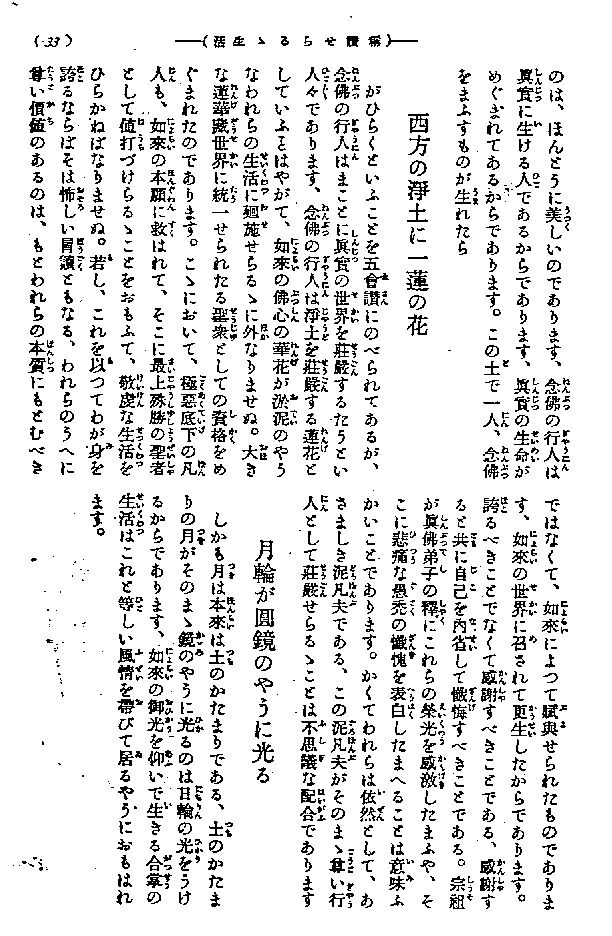 (33)
―(稱讃せらるゝ生活)―
のは、ほんとうに美しいのであります、念佛の行人は
眞實に生ける人であるからであります、眞實の生命が
めぐまれてあるからであります。この土で一人、念佛
をまふすものが生れたら
西方の淨土に一蓮の花
がひらくといふことを五會讃にのべられてあるが、
念佛の行人はまことに眞實の世界を莊嚴するたうとい
人々であります、念佛の行人は淨土を莊嚴する蓮花と
していふそはやがて、如來の佛心の華花が淤泥のやう
なわれらの生活に廻施せらるゝに外なりませぬ。大き
な蓮華藏世界に統一せられたる聖衆としての資格をめ
ぐまれたのであります。こゝにおいて、極惡底下の凡
人も、如來の本願に救はれて、そこに最上殊勝の聖者
として値打づけらるゝことをおもふて、敬虔な生活を
ひらかねばなりませぬ。若し、これを以つてわが身を
誇るならばそは怖しい冒瀆ともなる、われらのうへに
尊い價値のあるのは、もとわれらの本質にもとむべき
ではなくて、如來によつて賦與せられたものでありま
す、如來の世界に召されて更生したからであります。
誇るべきことでなくて感謝すべきことである、感謝す
ると共に自己を内省して懺悔すべきことである。宗祖
が眞佛弟子の釋にこれらの榮光を感激したまふや、そ
こに悲痛な愚禿の懺愧を表白したまへることは意味ふ
かいことであります。かくてわれらは依然として、あ
さましき泥凡夫である、この泥凡夫がそのまゝ尊い行
人として莊嚴せらるゝことは不思議な配合であります
月輪が圓鏡のやうに光る
しかも月は本來は土のかたまりである、土のかたま
りの月がそのまゝ鏡のやうに光るのは日輪の光をうけ
るからであります、如來の御光を仰いで生きる合掌の
生活はこれと等しい風情を帶びて居るやうにおもはれ
ます。